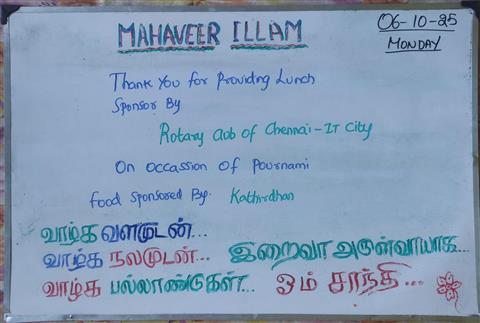 MAHAVEER ILLAM
06-10-25
MONDAY
Thank You for Providng Lunch
Sponsor By
Rotary Club of Chennai-IT City
On occassion of Pournami
food Sponsored By. Kathirdhan
வாழ்க வளமுடன்...
வாழ்க நலமுடன்... இறைவா அருள்வாயாக...
வாழ்க பல்லாண்டுகள்... ஓம் சாந்தி...